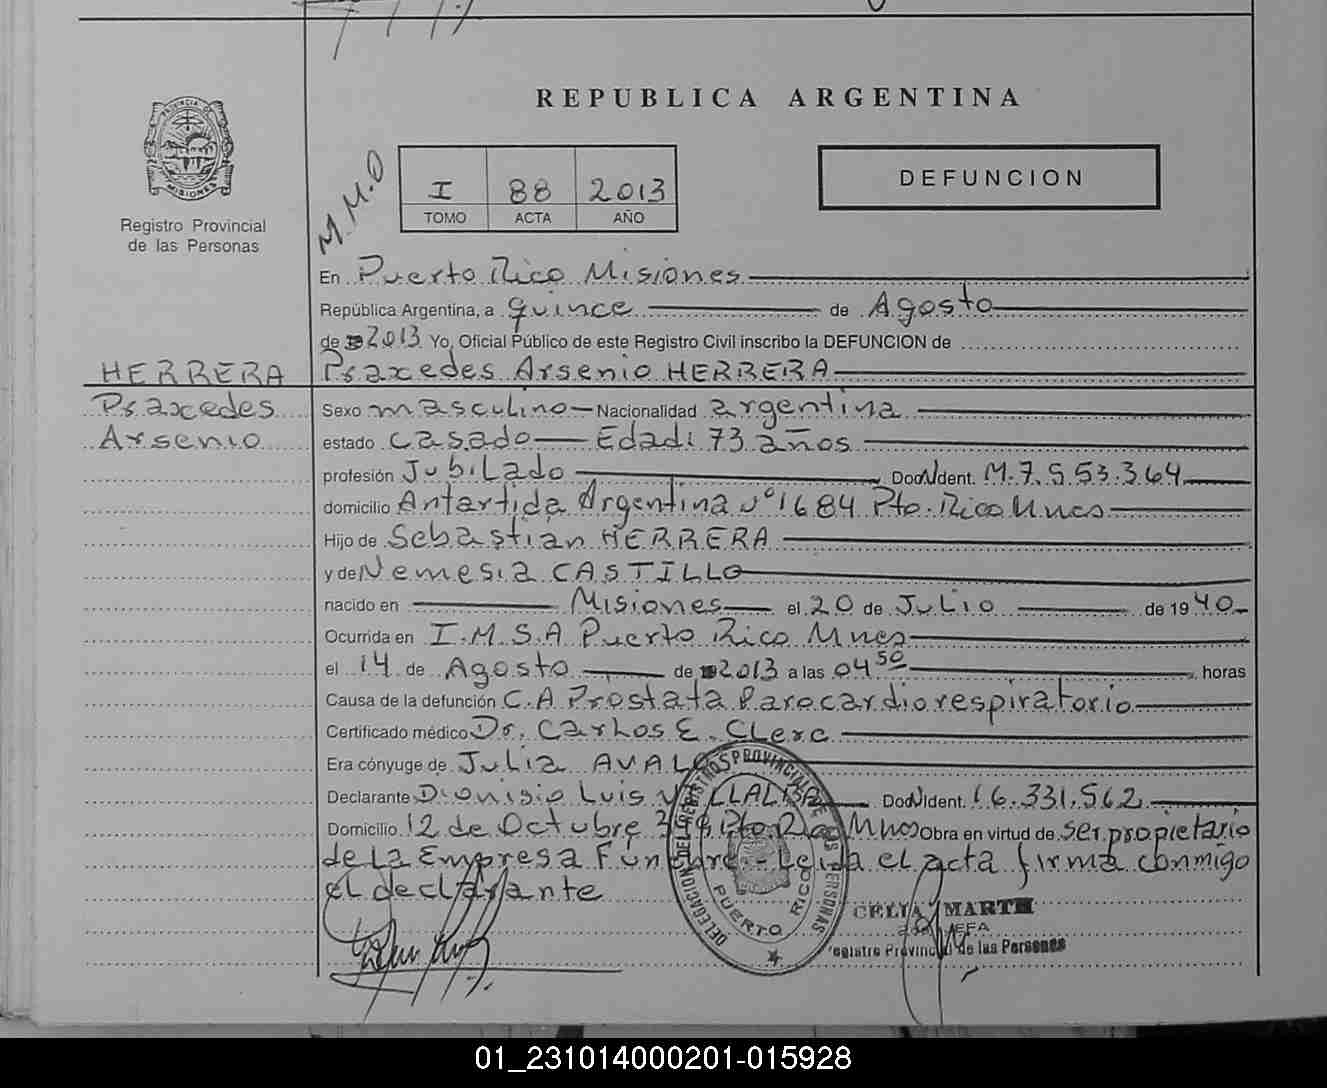 REPUBLICA ARGENTINA
PROVINCIA DE MISIONES
Registro Provincial
de las Personas
M.M.O
I 88 2013
TOMO ACTA AÑO
DEFUNCION
En Puerto Rico Misiones
República Argentina, a quince de Agosto
de 2013 Yo, Oficial Público de este Registro Civil inscribo la DEFUNCION de
HERRERA Praxedes Arsenio HERRERA
Praxedes Sexo masculino Nacionalidad argentina
Arsenio estado casado Edad: 73 años
profesión Jubilado Doc. Ident. M.7.553.364
domicilio Antartida Argentina nº 1684 Pto. Rico Mnes
Hijo de Sebastián HERRERA
y de Nemesia CASTILLO
nacido en Misiones el 20 de Julio de 1940
Ocurrida en I.M.S.A Puerto Rico Mnes
el 14 de Agosto de 2013 a las 04 50 horas
Causa de la defunción C.A Prostata Parocardiorespiratorio
Certificado médico Dr. Carlos E. Clerc
Era cónyuge de Julia AVALOS
Declarante Dionisio Luis Doc. Ident. 16.331.562
Domicilio 12 de Octubre Pto. Rico Mnes Obra en virtud de ser propietario
de la Empresa Fúnebre - Leida el acta firma conmigo
el declarante
DELEGACION DEL REGISTRO PROVINCIAL DE LAS PERSONAS
PUERTO RICO
CELIA MARTH
JEFA
Registro Provincial de las Personas
01_231014000201-015928